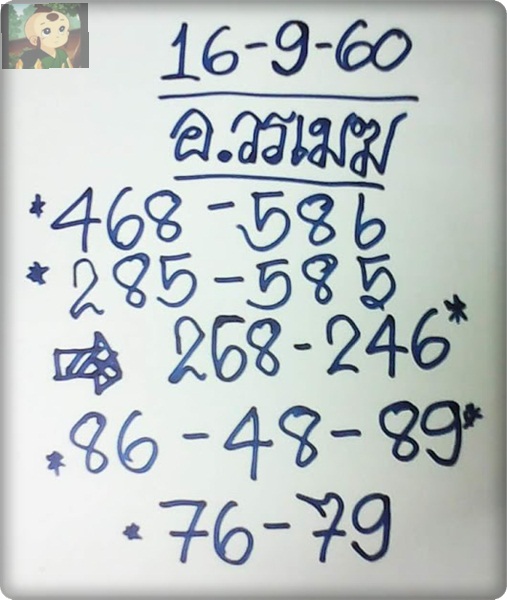 16-9-60
อ.วรเมฆ
*468-586
*285-585
268-246*
*86-48-89*
*76-79